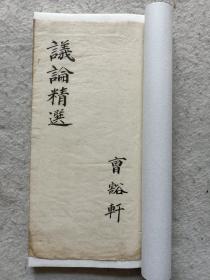 議論精選
曺谿軒